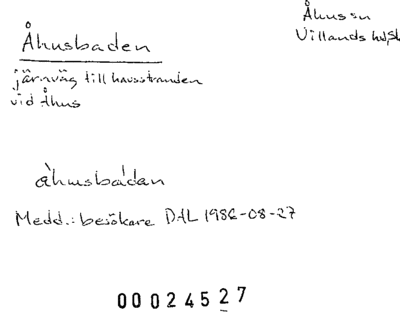 Åhusbaden
Åhus sn
Villands hd, Sk
järnväg till havsstranden
vid Åhus
åhusbadan
Medd.: besökare DAL 1986-08-27
00024527